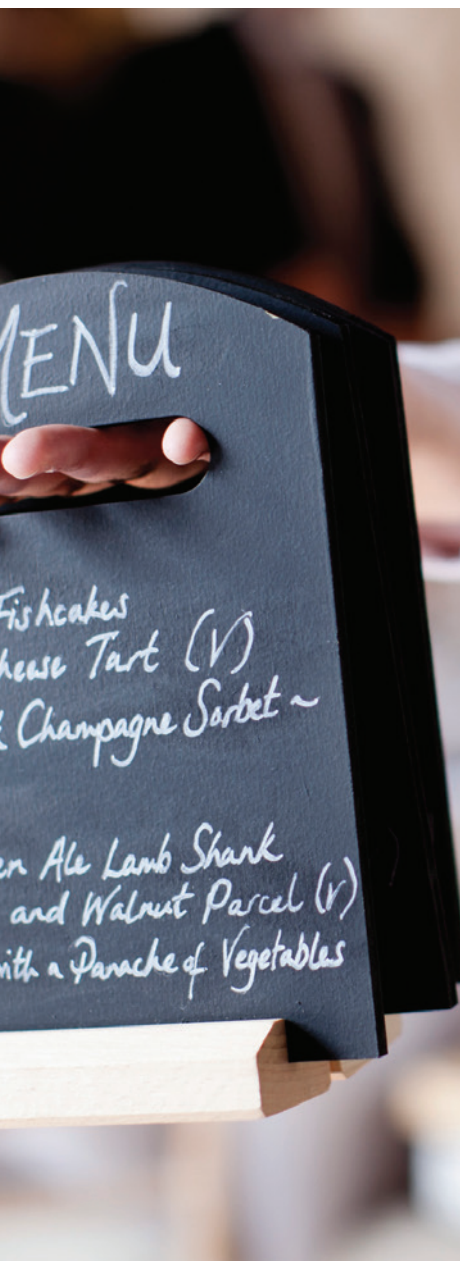 MENU
Fishcakes
Tart (V)
Champagne Sorbet ~
Ale Lamb Shank
and Walnut Parcel (v)
with a Panache of Vegetables